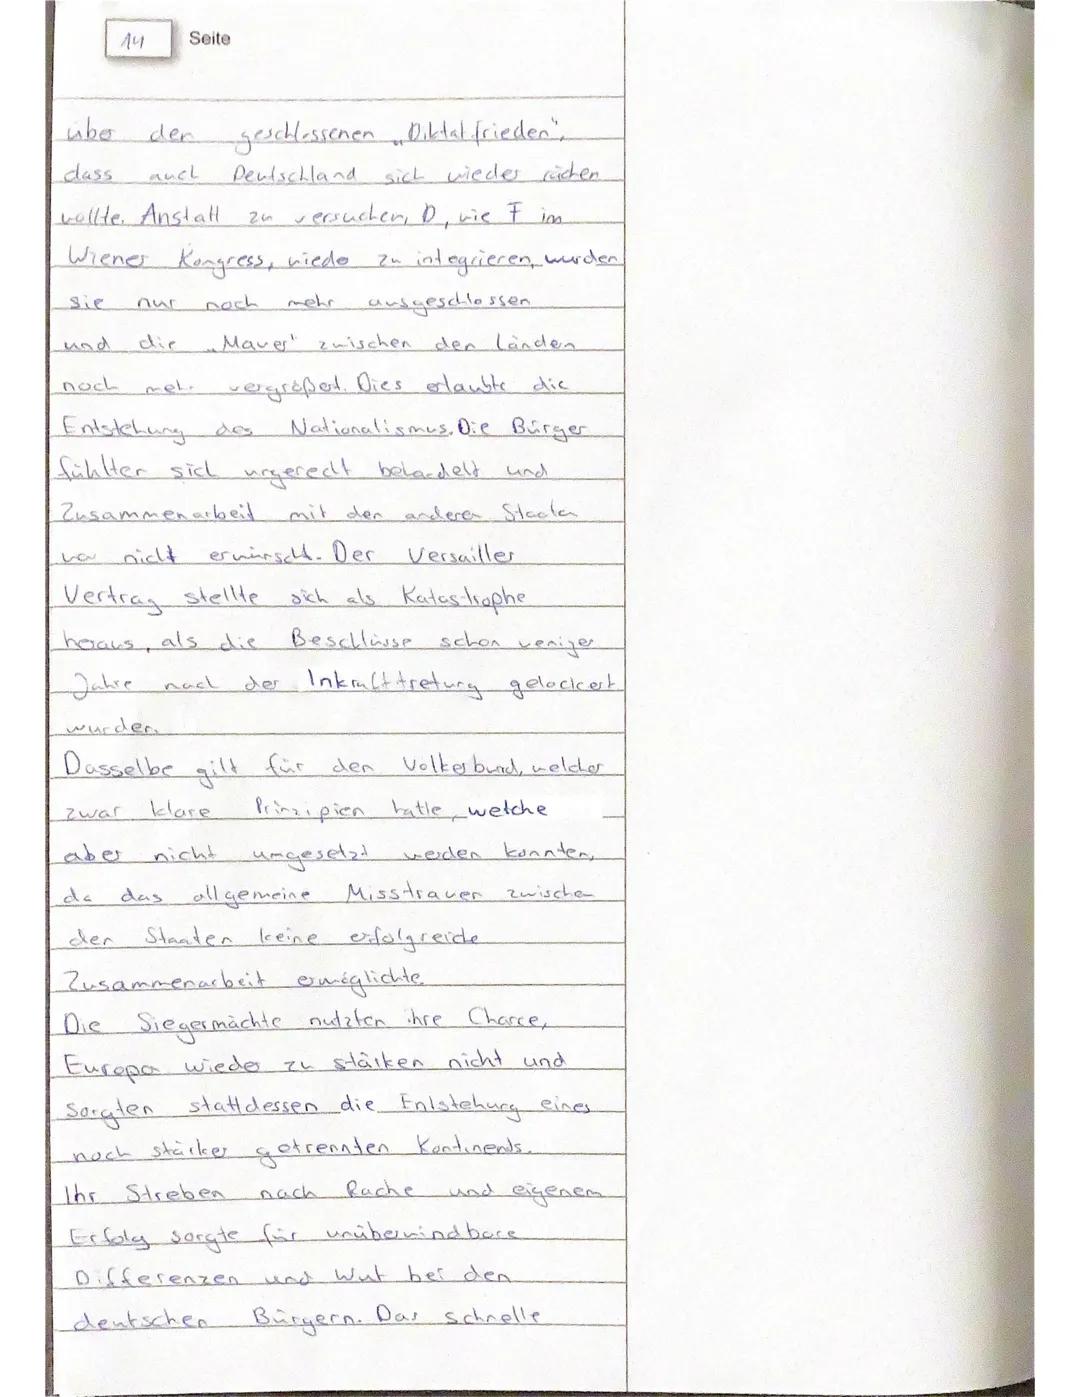 14 Seite
über den geschlossenen „Diktatfrieden",
dass auch Deutschland sich wieder rächen
wollte. Anstatt zu versuchen, D, wie F im
Wiener Kongress, wieder zu integrieren, wurden
sie nur noch mehr ausgeschlossen
und die „Mauer" zwischen den Länden
noch mehr vergrößert. Dies erlaubte die
Entstehung des Nationalismus. Die Bürger
fühlten sich ungerecht behandelt und
Zusammenarbeit mit den anderen Staaten
war nicht erwünscht. Der Versailler
Vertrag stellte sich als Katastrophe
heraus, als die Beschlüsse schon weniger
Jahre nach der Inkrafttretung gelockert
wurden.
Dasselbe gilt für den Volkerbund, welcher
zwar klare Prinzipien hatte, welche
aber nicht umgesetzt werden konnten,
da das allgemeine Misstrauen zwischen
den Staaten keine erfolgreiche
Zusammenarbeit ermöglichte.
Die Siegermächte nutzten ihre Chance,
Europa wieder zu stärken nicht und
sorgten stattdessen die Entstehung eines
noch stärker getrennten Kontinents.
Ihr Streben nach Rache und eigenem
Erfolg sorgte für unüberwindbare
Differenzen und Wut bei den
deutschen Bürgern. Das schnelle